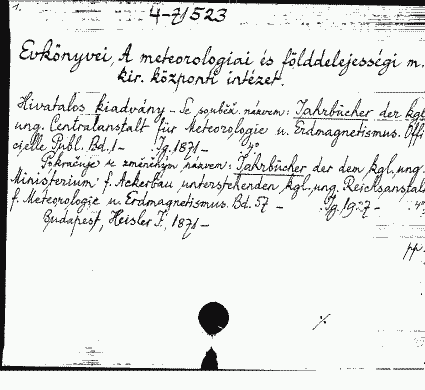 1.
4-7/523
Evkönyvei, A meteorologiai és földdelejességi m.
kir. központi intézet.
Hivatalos kiadvány - Se souběž. názvem: Jahrbücher der kgl.
ung. Centralanstalt für Meteorologie u. Erdmagnetismus. Offi
cielle Publ. Bd. 1 - Jg. 1871 - 4°
Pokračuje s změněným názvem: Jahrbücher der dem kgl. ung.
Ministerium f. Ackerbau unterstehenden kgl. ung. Reichsanstalt
f. Meteorologie u. Erdmagnetismus. Bd. 57 - Jg. 1927 - 4°
Budapest, Heisler J., 1871 -
pp.
./.